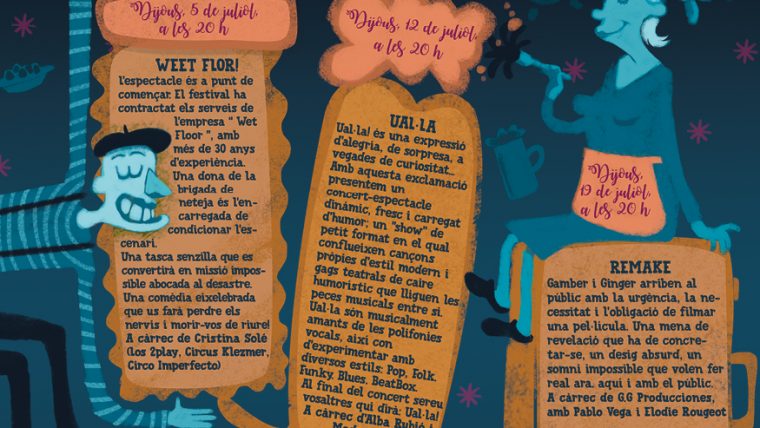 Dijous, 5 de juliol,
a les 20 h
WEET FLOR!
l'espectacle és a punt de
començar. El festival ha
contractat els serveis de
l'empresa " Wet
Floor ", amb
més de 30 anys
d'experiència.
Una dona de la
brigada de
neteja és l'en-
carregada de
condicionar l'es-
cenari.
Una tasca senzilla que es
convertirà en missió impos-
sible abocada al desastre.
Una comèdia eixelebrada
que us farà perdre els
nervis i morir-vos de riure!
A càrrec de Cristina Solé
(Los 2play, Circus Klezmer,
Circo Imperfecto)
Dijous, 12 de juliol,
a les 20 h
UAL·LA
Ual·la! és una expressió
d'alegria, de sorpresa, a
vegades de curiositat...
Amb aquesta exclamació
presentem un
concert-espectacle
dinàmic, fresc i carregat
d'humor; un "show" de
petit format en el qual
conflueixen cançons
pròpies d'estil modern i
gags teatrals de caire
humorístic que lliguen les
peces musicals entre si.
Ual·la són musicalment
amants de les polifonies
vocals, així con
d'experimentar amb
diversos estils: Pop, Folk,
Funky, Blues, BeatBox.
Al final del concert sereu
vosaltres qui dirà: Ual·la!
A càrrec d'Alba Rubió i
Dijous,
19 de juliol,
a les 20 h
REMAKE
Gamber i Ginger arriben al
públic amb la urgència, la ne-
cessitat i l'obligació de filmar
una pel·lícula. Una mena de
revelació que ha de concre-
tar-se, un desig absurd, un
somni impossible que volen fer
real ara, aquí i amb el públic.
A càrrec de G.G Producciones,
amb Pablo Vega i Elodie Rougeot